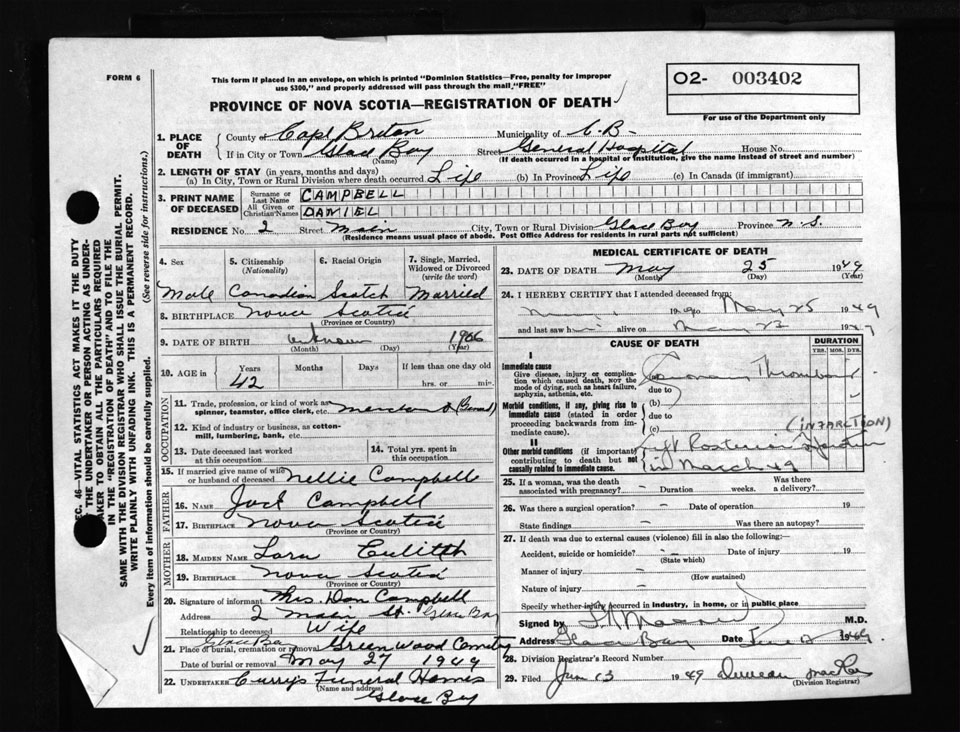 FORM 6
This form if placed in an envelope, on which is printed "Dominion Statistics—Free, penalty for improper
use $300," and properly addressed will pass through the mail "FREE"
O2- 003402
For use of the Department only
PROVINCE OF NOVA SCOTIA—REGISTRATION OF DEATH
1. PLACE OF DEATH
County of Cape Breton Municipality of C.B.
If in City or Town Glace Bay (Name) Street General Hospital House No.
(If death occurred in a hospital or institution, give the name instead of street and number)
2. LENGTH OF STAY (in years, months and days)
(a) In City, Town or Rural Division where death occurred Life (b) In Province Life (c) In Canada (if immigrant)
3. PRINT NAME OF DECEASED
Surname or Last Name CAMPBELL
All Given or Christian Names DANIEL
RESIDENCE No. 2 Street Main City, Town or Rural Division Glace Bay Province N.S.
(Residence means usual place of abode. Post Office Address for residents in rural parts not sufficient)
4. Sex 5. Citizenship (Nationality) 6. Racial Origin 7. Single, Married, Widowed or Divorced (write the word)
Male Canadian Scotch Married
8. BIRTHPLACE Nova Scotia
(Province or Country)
9. DATE OF BIRTH unknown 1906
(Month) (Day) (Year)
10. AGE in Years Months Days If less than one day old
42 hrs. or min.
OCCUPATION
11. Trade, profession, or kind of work as spinner, teamster, office clerk, etc.
12. Kind of industry or business, as cotton-mill, lumbering, bank, etc.
13. Date deceased last worked at this occupation 14. Total yrs. spent in this occupation
15. If married give name of wife or husband of deceased Nellie Campbell
FATHER
16. Name Campbell
17. Birthplace Nova Scotia
MOTHER
18. MAIDEN NAME
19. BIRTHPLACE Nova Scotia
(Province or Country)
20. Signature of informant Mrs. Dan Campbell
Address 2 Main St. Glace Bay
Relationship to deceased Wife
21. Place of burial, cremation or removal Glace Bay Greenwood Cemetery
Date of burial or removal May 27 1949
22. UNDERTAKER Curry's Funeral Homes
(Name and address)
Glace Bay
MEDICAL CERTIFICATE OF DEATH
23. DATE OF DEATH May 25 1949
(Month) (Day) (Year)
24. I HEREBY CERTIFY that I attended deceased from
19 to May 25 1949
and last saw h alive on May 19
CAUSE OF DEATH
DURATION
YRS. MOS. DYS.
I
Immediate cause
Give disease, injury or complication which caused death, NOT the mode of dying, such as heart failure, asphyxia, asthenia, etc.
(a) Coronary Thrombosis
due to
Morbid conditions, if any, giving rise to immediate cause (stated in order proceeding backwards from immediate cause).
(b)
due to
(c)
(INFARCTION)
II
Other morbid conditions (if important) contributing to death but not causally related to immediate cause.
in March 49
25. If a woman, was the death associated with pregnancy? – Duration weeks. Was there a delivery?
26. Was there a surgical operation? – Date of operation 19
State findings – Was there an autopsy?
27. If death was due to external causes (violence) fill in also the following:—
Accident, suicide or homicide? – Date of injury 19
(State which)
Manner of injury –
(How sustained)
Nature of injury –
Specify whether injury occurred in industry, in home, or in public place
Signed by M.D.
Address Glace Bay Date 1949
28. Division Registrar's Record Number
29. Filed June 13 1949 Duncan
(Division Registrar)
SEC. 46—VITAL STATISTICS ACT MAKES IT THE DUTY
OF THE UNDERTAKER OR PERSON ACTING AS UNDER-
TAKER TO OBTAIN ALL THE PARTICULARS REQUIRED
IN THE "REGISTRATION OF DEATH" AND TO FILE THE
SAME WITH THE DIVISION REGISTRAR WHO SHALL ISSUE THE BURIAL PERMIT.
WRITE PLAINLY WITH UNFADING INK. THIS IS A PERMANENT RECORD.
Every item of information should be carefully supplied. (See reverse side for instructions.)